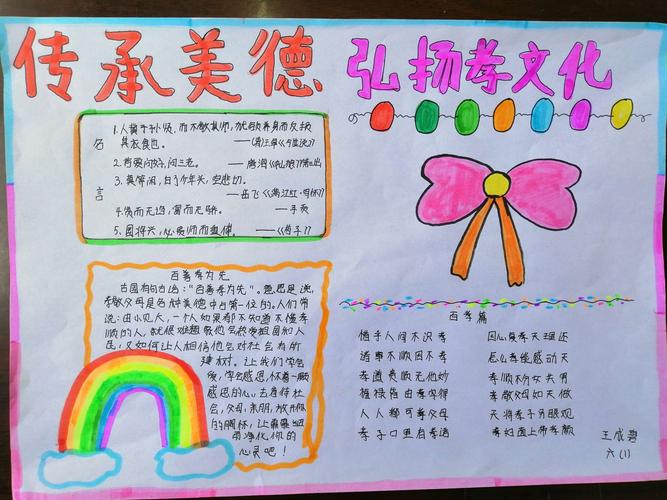 传承美德 弘扬孝文化
名言
1.人冀子孙贤，而不敬其师，犹欲养身而反损
其衣食也。
2.若要问好，问三老。
3.莫等闲，白了少年头，空悲切。
——岳飞《满江红·写怀》
4.贫而无谄，富而无骄。 ——子贡
5.国将兴，必贵师而重傅。——《荀子》
百善孝为先
古国有句古话：“百善孝为先”。意思是说，
孝敬父母是各种美德中占第一位的。人们常
说：由小见大，一个人如果都不知道不懂孝
顺的人，就很难想象他会热爱祖国和人
民，又如何让人相信他会对社会有所
建树。让我们学会
爱，学会感恩，怀着一颗
感恩的心，去看待社
会，父母，亲朋，放开你
的胸怀，让
净化你的
心灵吧！
百孝篇
惜乎人间不识孝 回心复孝天理还
诸事不顺因不孝 怎知孝能感动天
孝道贵顺无他妙 孝顺不分女共男
福禄皆由孝字得 孝敬父母如天做
人人都可孝父母 天将孝子另眼观
孝子口里有孝语 孝妇面上带孝颜
王成
六(1)